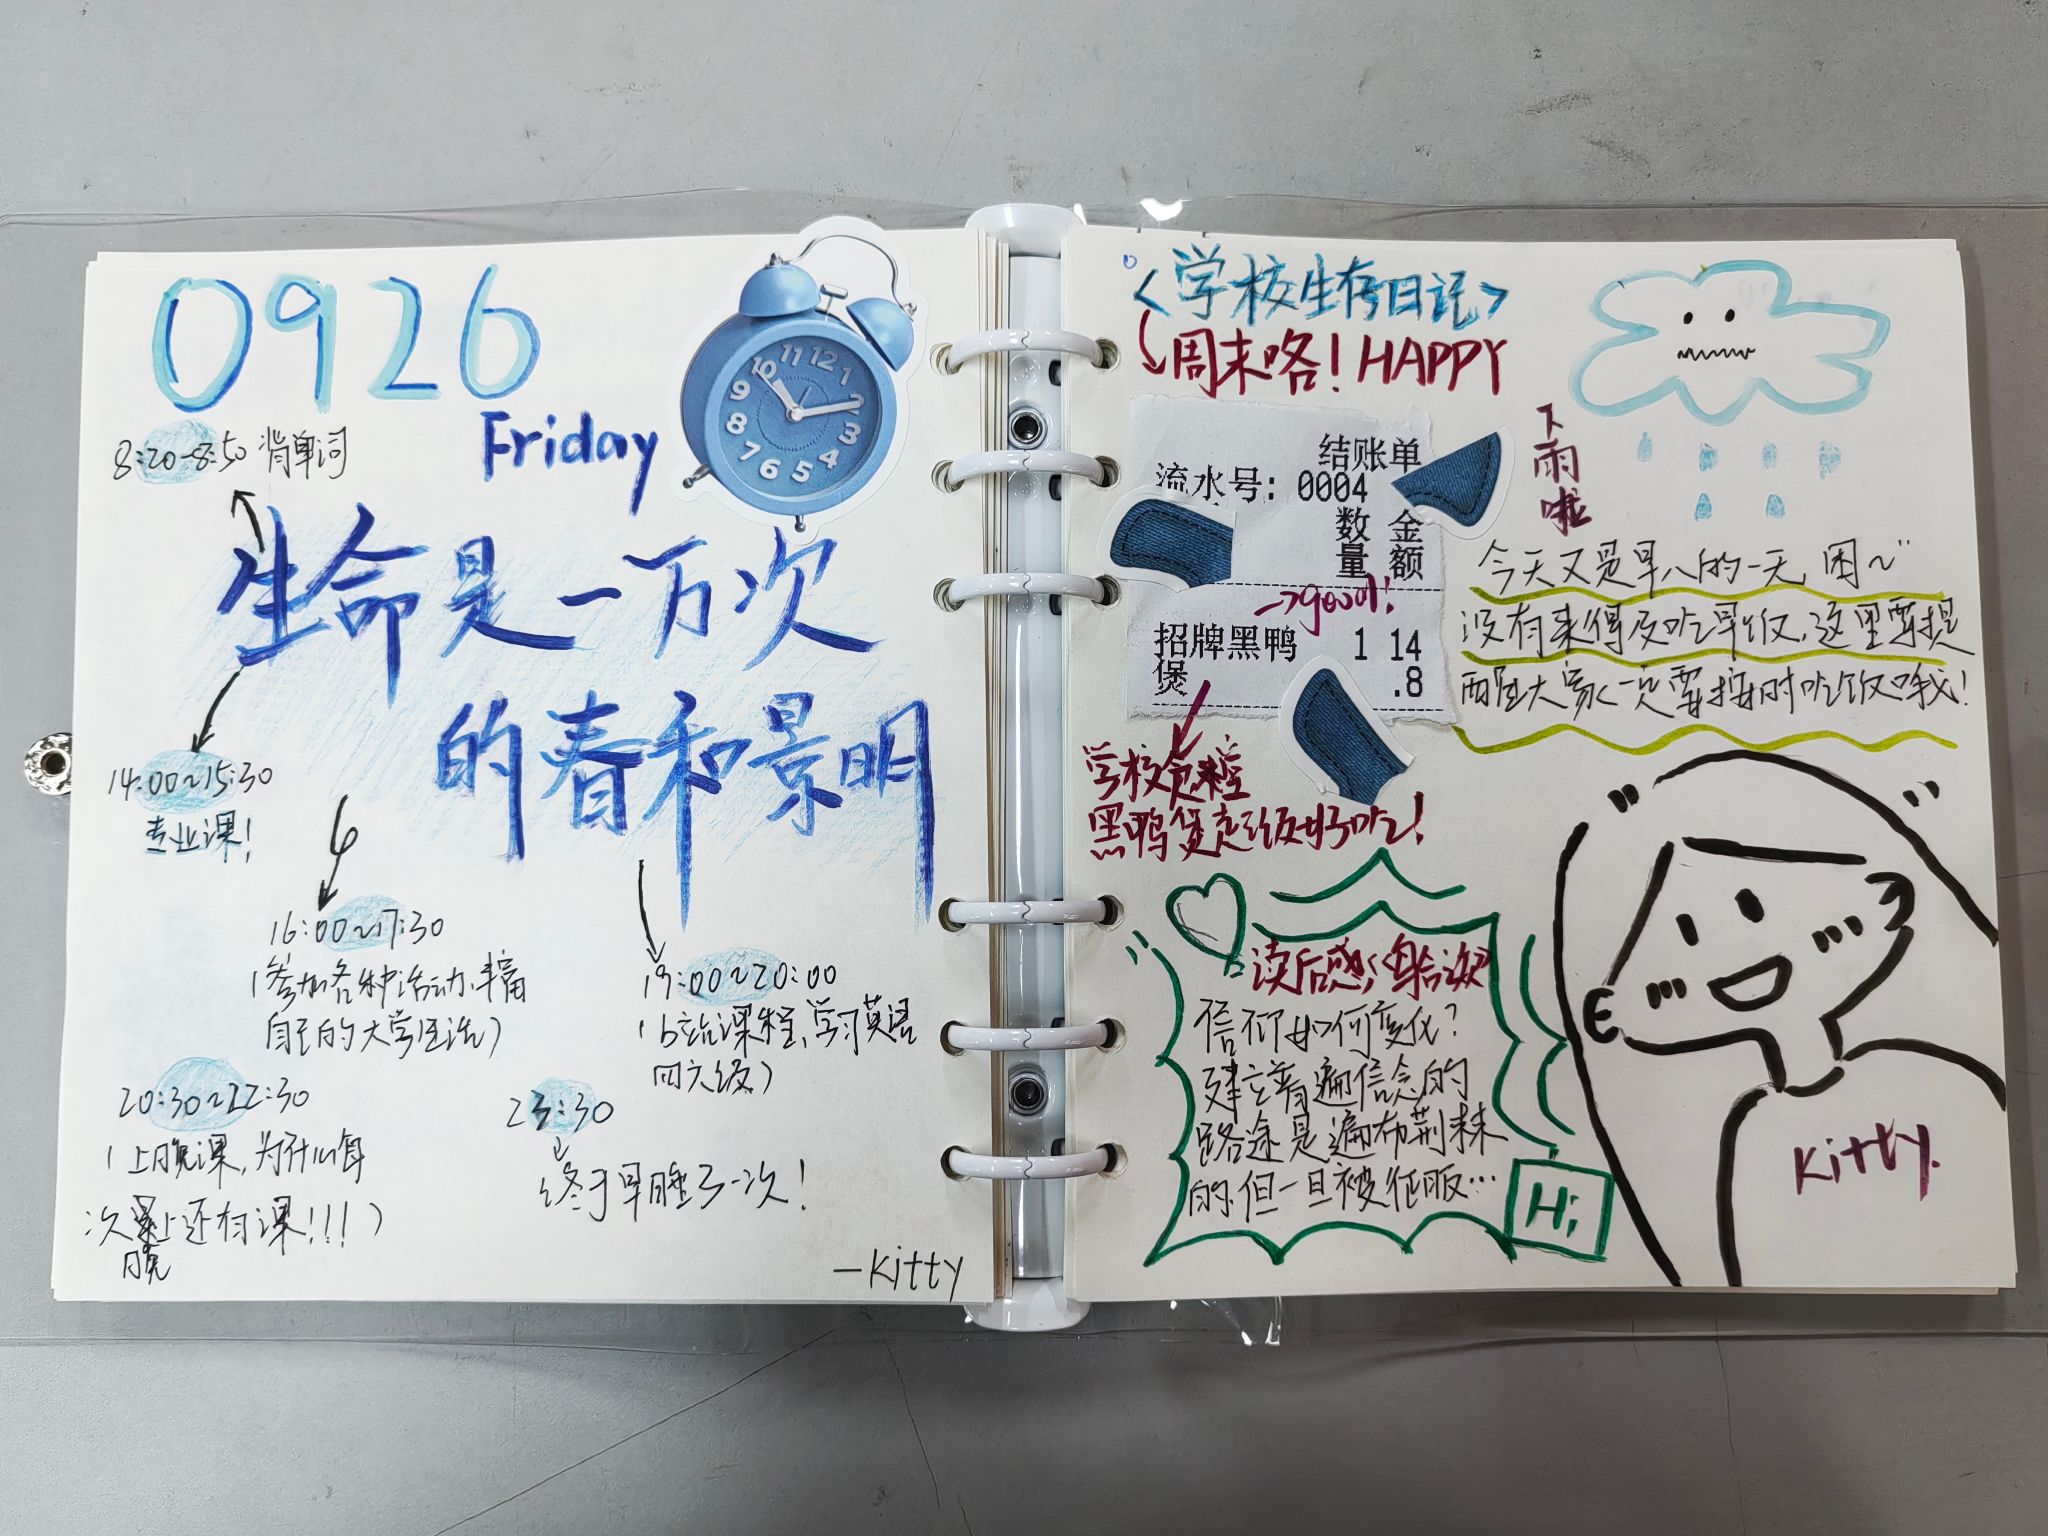 0926
Friday
8:20-8:50 背单词
生命是一万次
的春和景明
14:00~15:30
专业课!
16:00~17:30
(参加各种活动、丰富
自己的大学生活)
19:00~20:00
(b站课程,学习英语
四六级)
20:30~22:30
(上晚课,为什么每
次晚上还有课!!!)
23:30
终于早睡了一次!
—Kitty
<学校生存日记>
周末咯! HAPPY
结账单
流水号: 0004
数量 金额
→good!
招牌黑鸭 1 14
煲 .8
学校食堂
黑鸭煲超级好吃!
下雨啦
今天又是早八的一天,困~
没有来得及吃早饭,这里要提
醒大家一定要按时吃饭哦!
读后感:
信仰如何变化?
建立普遍信念的
路途是遍布荆棘
的,但一旦被征服…
Hi
Kitty.
12
1
2
3
4
5
6
7
8
9
10
11